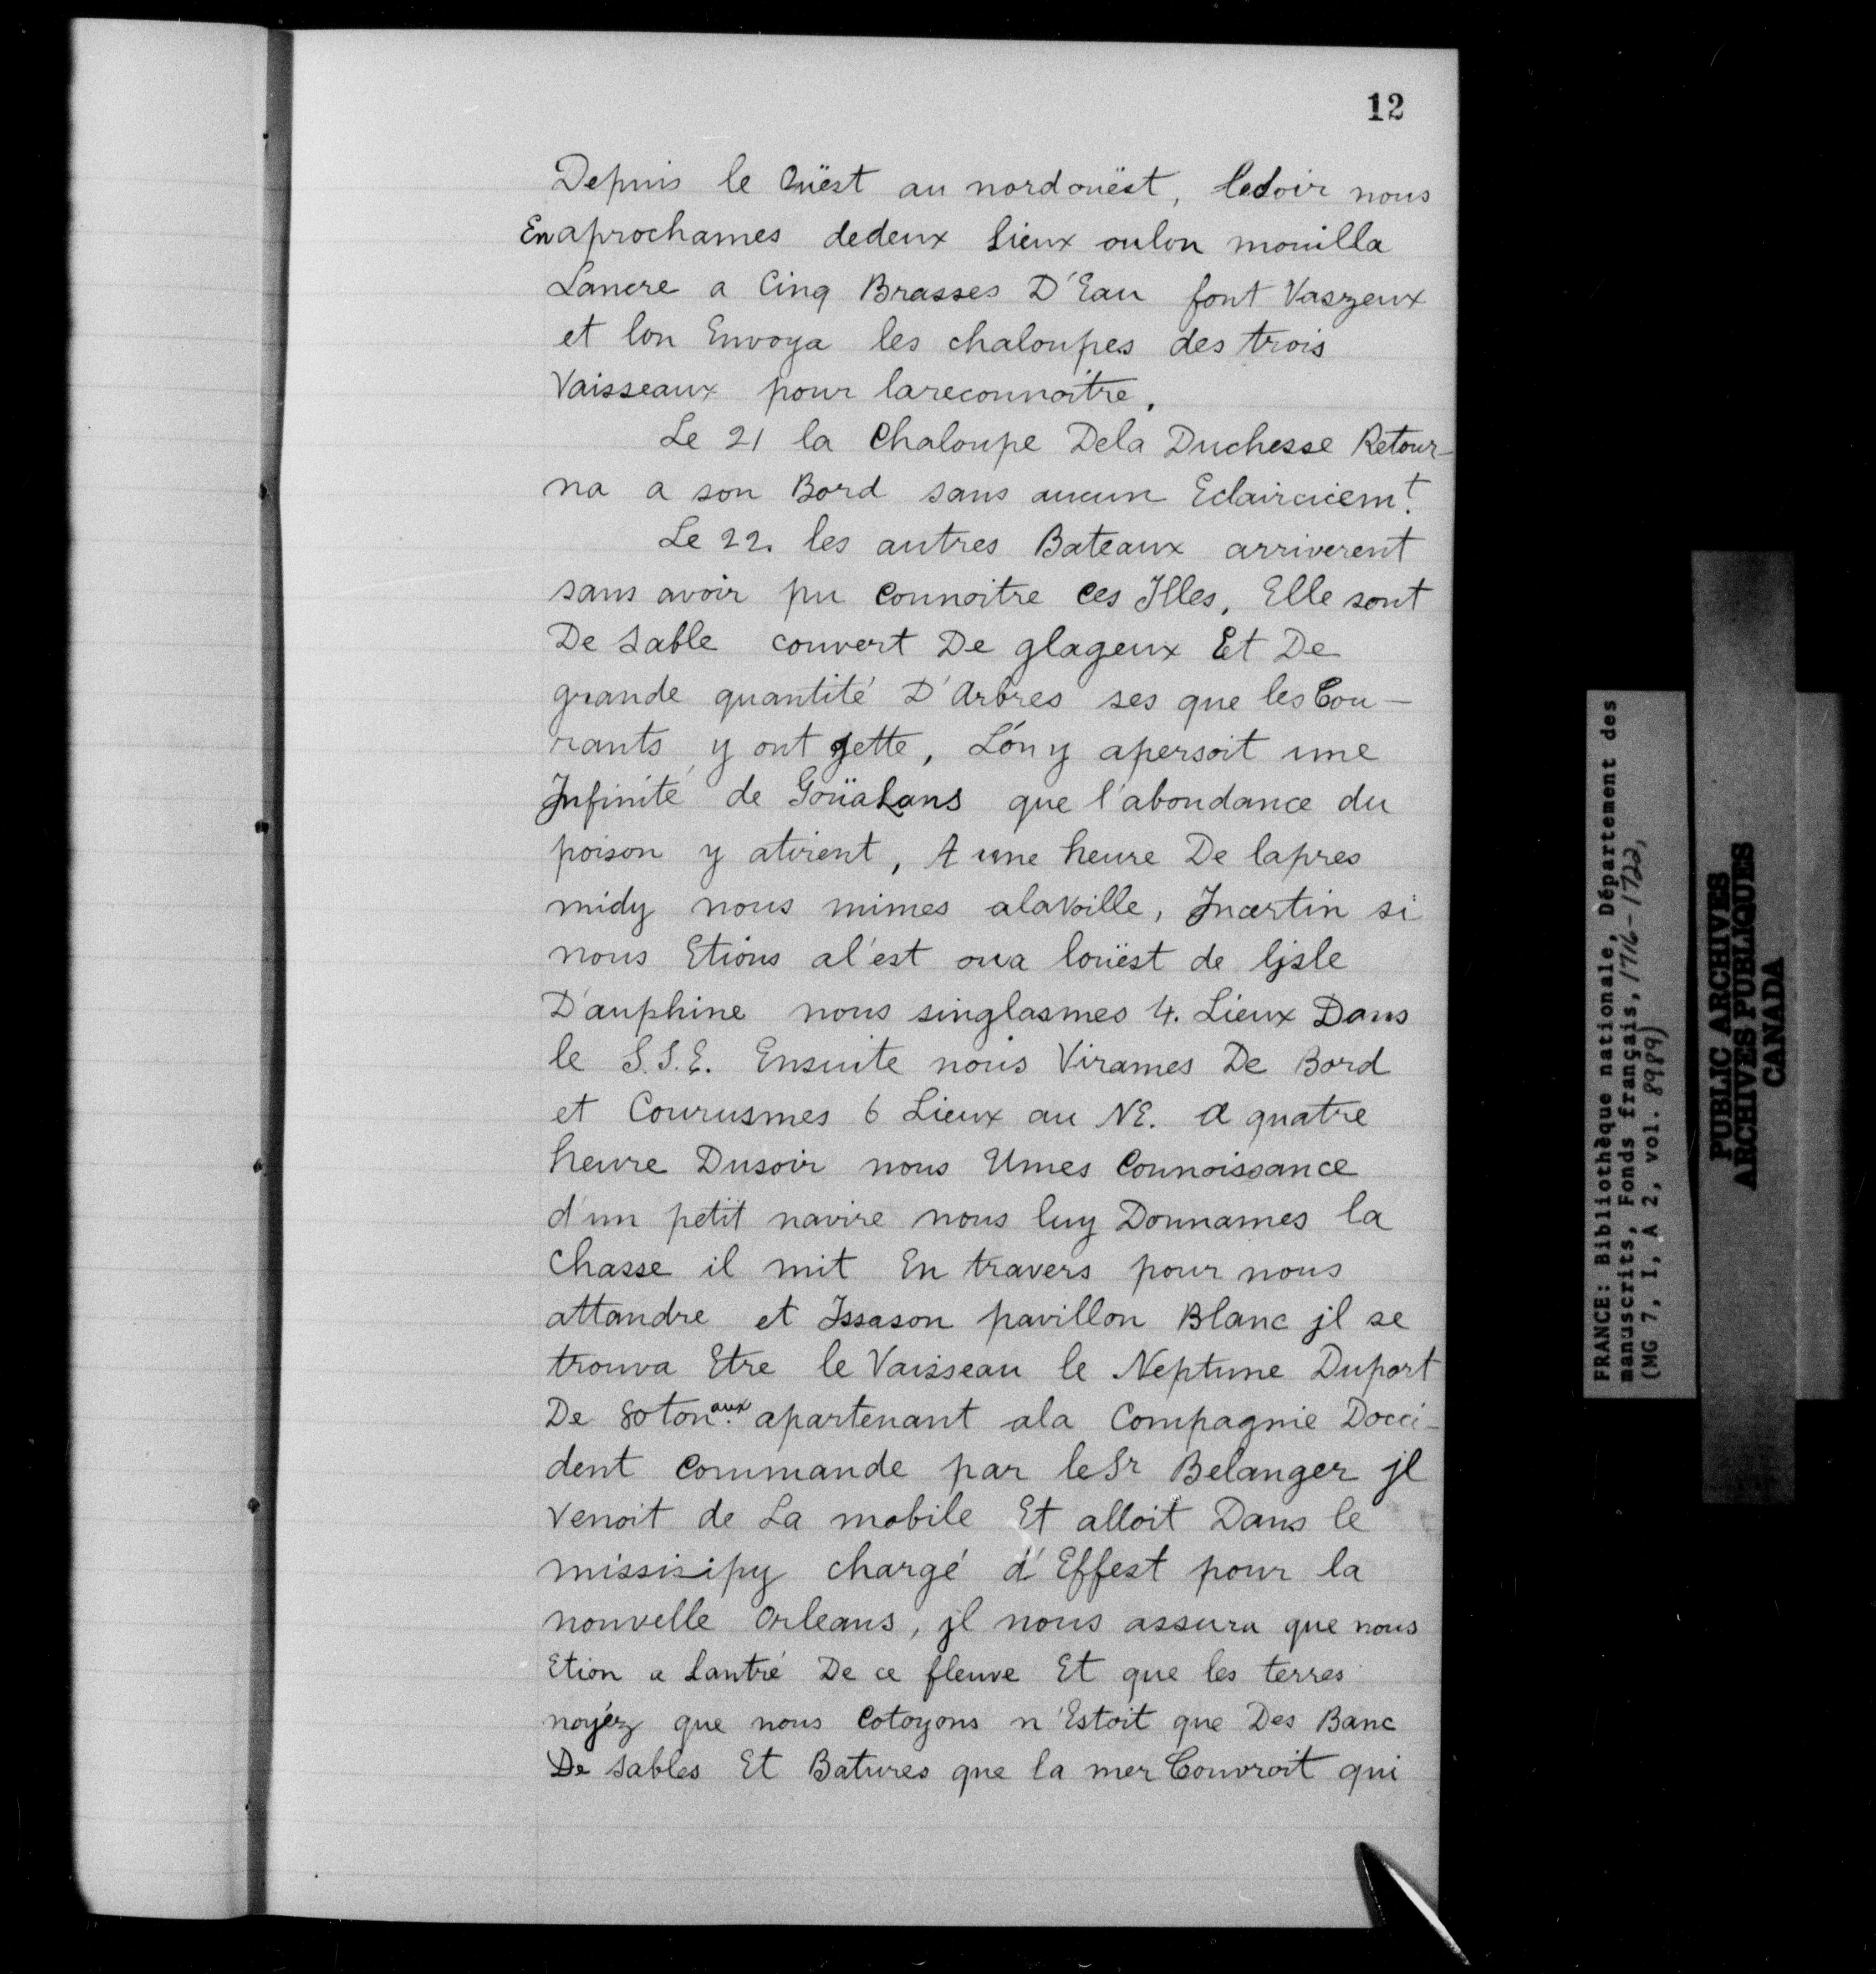 12
Depuis le Oüest au nordouëst, lesoir nous
Enaprochames dedeux lieux oulon mouilla
Lancre a Cinq Brasses D'Eau font Vaszeux
et lon Envoya les chaloupes des trois
Vaisseaux pour lareconnoitre.
Le 21 la Chaloupe Dela Duchesse Retour-
na a son Bord sans aucun Eclairciciemt.
Le 22. les autres Bateaux arriverent
sans avoir pu Connoitre Ces Jlles, Elle sont
De sable couvert De glageux Et De
grande quantité D'Arbres ses que les Cou-
rants y ont gette, L'on y apersoit une
Infinité de Goüalans que l'abondance du
poison y atirent, A une heure De lapres
midy nous mimes alavoille, Incertin si
nous Etions al'est oua loüest de ljsle
D'auphine nous singlasmes 4. Lieux Dans
le S.S.E. Ensuite nous Virames De Bord
et Courusmes 6 Lieux au NE. a quatre
heure Dusoir nous Umes Connoissance
d'un petit navire nous luy Donnames la
Chasse il mit En travers pour nous
attandre et Issason pavillon Blanc jl se
trouva Etre le Vaisseau le Neptune Duport
De 80 tonaux. apartenant ala Compagnie Docci-
dent Commande par leSr Belanger jl
Venoit de La mobile Et alloit Dans le
missisipy chargé d'Effest pour la
nouvelle Orleans, jl nous assura que nous
Etion a Lantré De ce fleuve Et que les terres
noyéz que nous Cotoyons n'Estoit que Des Banc
De sables Et Batures que la mer Couvroit qui
FRANCE: Bibliothèque nationale, Département des
manuscrits, Fonds français, 1716-1722,
(MG 7, I, A 2, vol. 8989)
PUBLIC ARCHIVES
ARCHIVES PUBLIQUES
CANADA